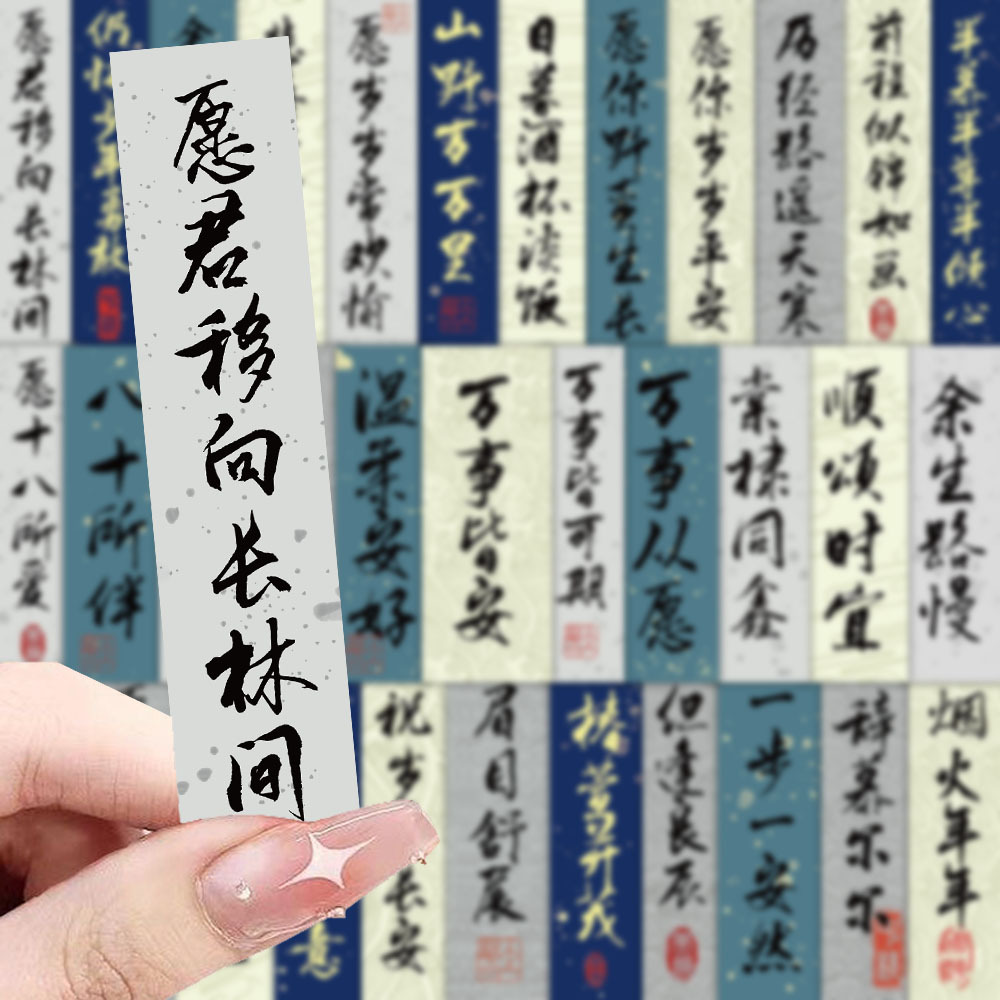 愿君移向长林间
愿君移向长林间
愿岁岁常欢愉
山野万万里
日暮酒杯淡饭
愿你野蛮生长
愿你岁岁平安
历经路遥天寒
前程似锦如画
年慕年尊年倾心
愿十八所爱
八十所伴
温柔安好
万事皆安
万事皆可期
万事从愿
棠棣同鑫
顺颂时宜
余生路慢
祝岁岁长安
眉目舒展
椿萱并茂
但逢良辰
一步一安然
辞慕尔尔
烟火年年
意